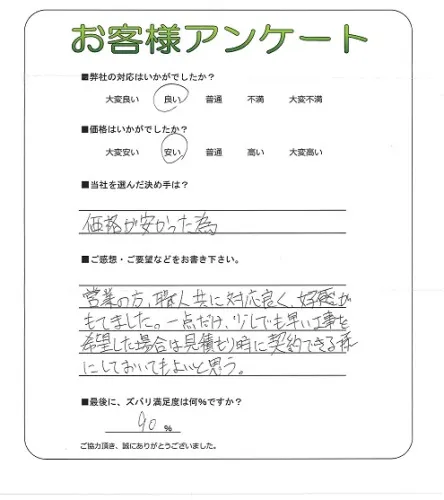 お客様アンケート
■弊社の対応はいかがでしたか?
大変良い 良い 普通 不満 大変不満
■価格はいかがでしたか?
大変安い 安い 普通 高い 大変高い
■当社を選んだ決め手は?
価格が安かった為
■ご感想・ご要望などをお書き下さい。
営業の方、職人共に対応良く、好感が
もてました。一点だけ、少しでも早い工事を
希望した場合は見積もり時に契約できる様
にしておいてもよいと思う。
■最後に、ズバリ満足度は何%ですか?
90 %
ご協力頂き、誠にありがとうございました。